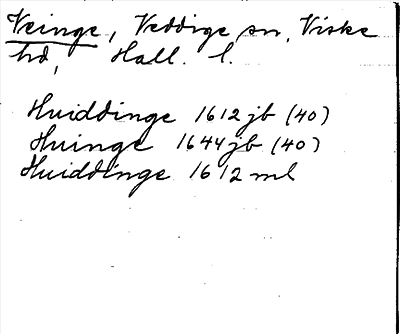 Veinge, Veddige sn, Viske
hd, Hall. l.
Huiddinge 1612 jb (40)
Huinge 1644 jb (40)
Huiddinge 1612 ml